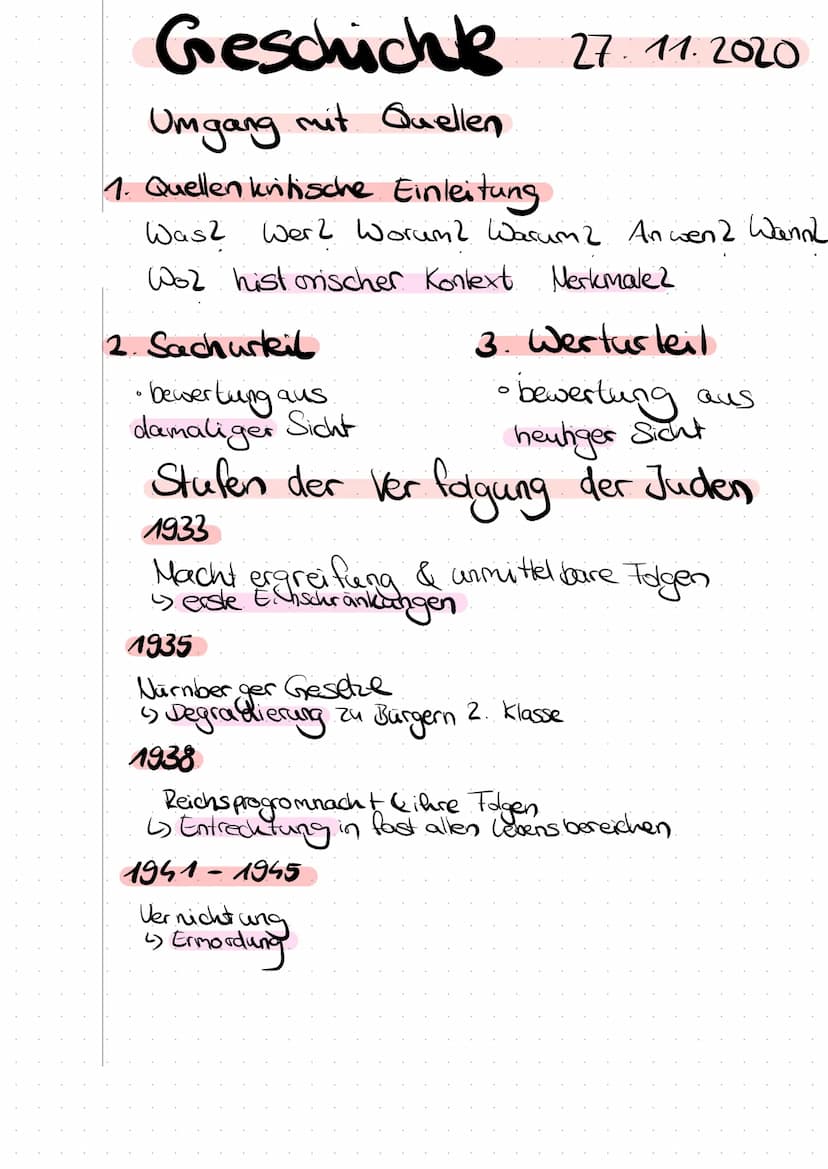 Geschichte 27.11.2020
Umgang mit Quellen
1. Quellenkritische Einleitung
Was? Wer? Worum? Warum? An wen? Wann?
Wo? historischer Kontext Merkmale?
2. Sachurteil
3. Werturteil
• bewertung aus
damaliger Sicht
• bewertung aus
heutiger Sicht
Stufen der Verfolgung der Juden
1933
Machtergreifung & unmittelbare Folgen
↳ erste Einschränkungen
1935
Nürnberger Gesetze
↳ Degradierung zu Bürgern 2. Klasse
1938
Reichsprogromnacht & ihre Folgen
↳ Entrechtung in fast allen Lebensbereichen
1941 - 1945
Vernichtung
↳ Ermordung